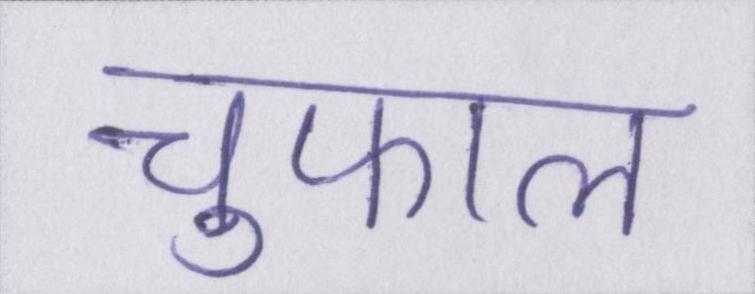 चुफाल